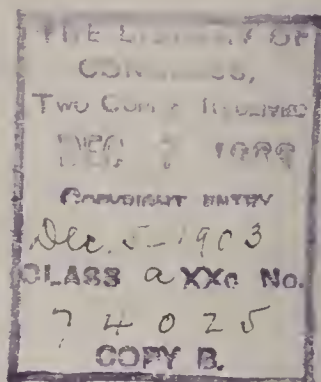 THE LIBRARY OF
CONGRESS,
TWO COPIES RECEIVED
DEC
COPYRIGHT ENTRY
Dec. 5-1903
CLASS a XXc No.
74025
COPY B.